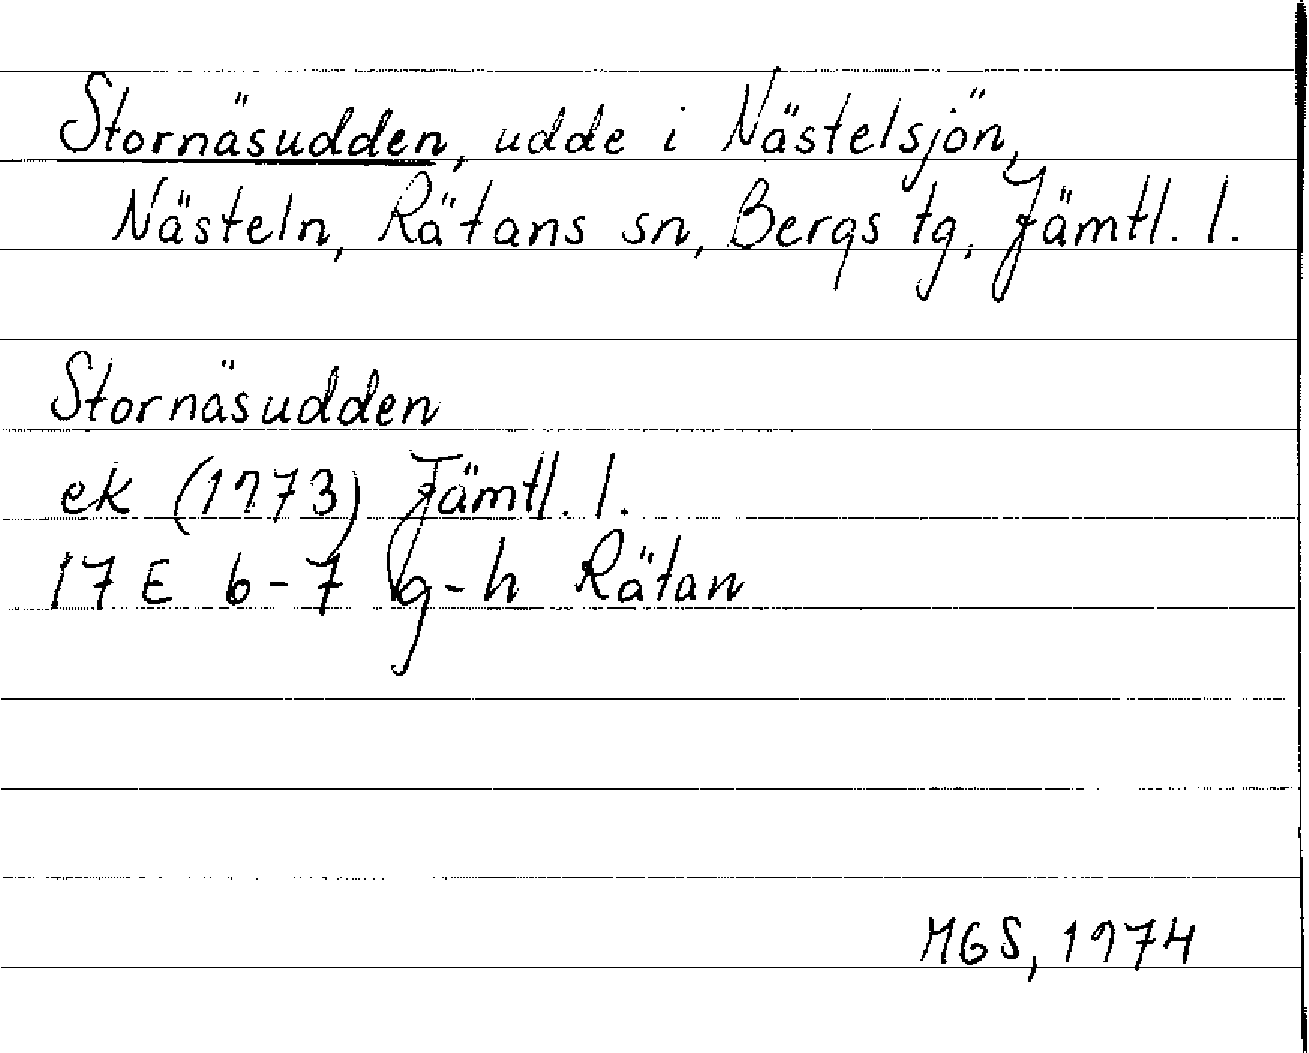 Stornäsudden, udde i Nästelsjön,
Nästeln, Rätans sn, Bergs tg, Jämtl. l.
Stornäsudden
ek (1973) Jämtl. l.
17 E 6-7 g-h Rätan
MGS, 1974